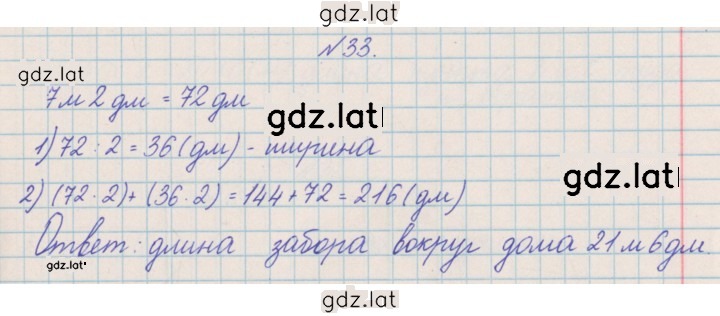 gdz.lat
№33.
gdz.lat
7м 2 дм = 72 дм
gdz.lat
1) 72 : 2 = 36 (дм) - ширина
gdz.lat
2) (72 · 2) + (36 · 2) = 144 + 72 = 216 (дм)
Ответ: длина забора вокруг дома 21 м 6 дм.
gdz.lat
gdz.lat